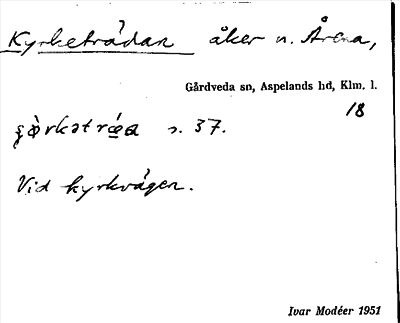 Kyrketrådan åker n. Årena,
Gårdveda sn, Aspelands hd, Klm. l.
18
s. 37.
Vid kyrkvägen.
Ivar Modéer 1951